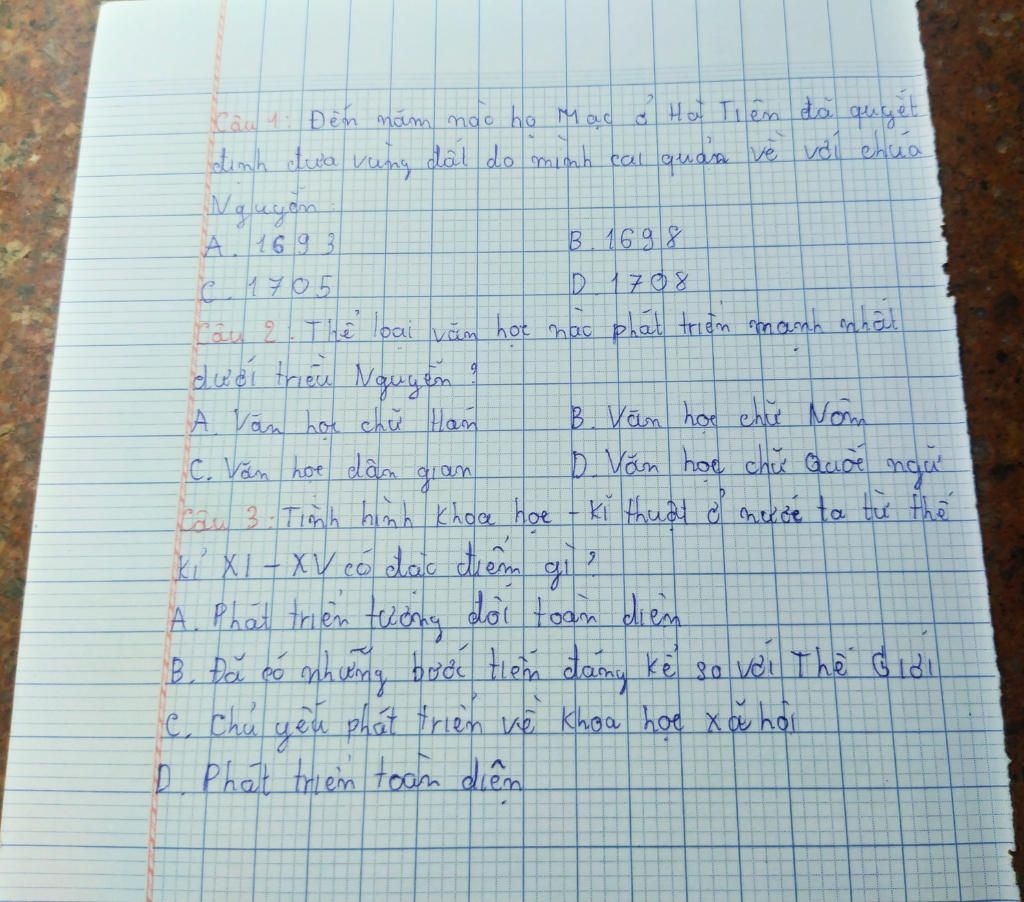 Câu 1: Đến năm nào họ Mạc ở Hà Tiên đã quyết
định đưa vùng đất do mình cai quản về với chúa
Nguyễn
A. 1693 B. 1698
C. 1705 D. 1708
Câu 2: Thể loại văn học nào phát triển mạnh nhất
dưới triều Nguyễn?
A. Văn học chữ Hán B. Văn học chữ Nôm
C. Văn học dân gian D. Văn học chữ Quốc ngữ
Câu 3: Tình hình khoa học - kĩ thuật ở nước ta từ thế
kỉ XI - XV có đặc điểm gì?
A. Phát triển tương đối toàn diện
B. Đã có những bước tiến đáng kể so với Thế Giới
C. Chủ yếu phát triển về khoa học xã hội
D. Phát triển toàn diện